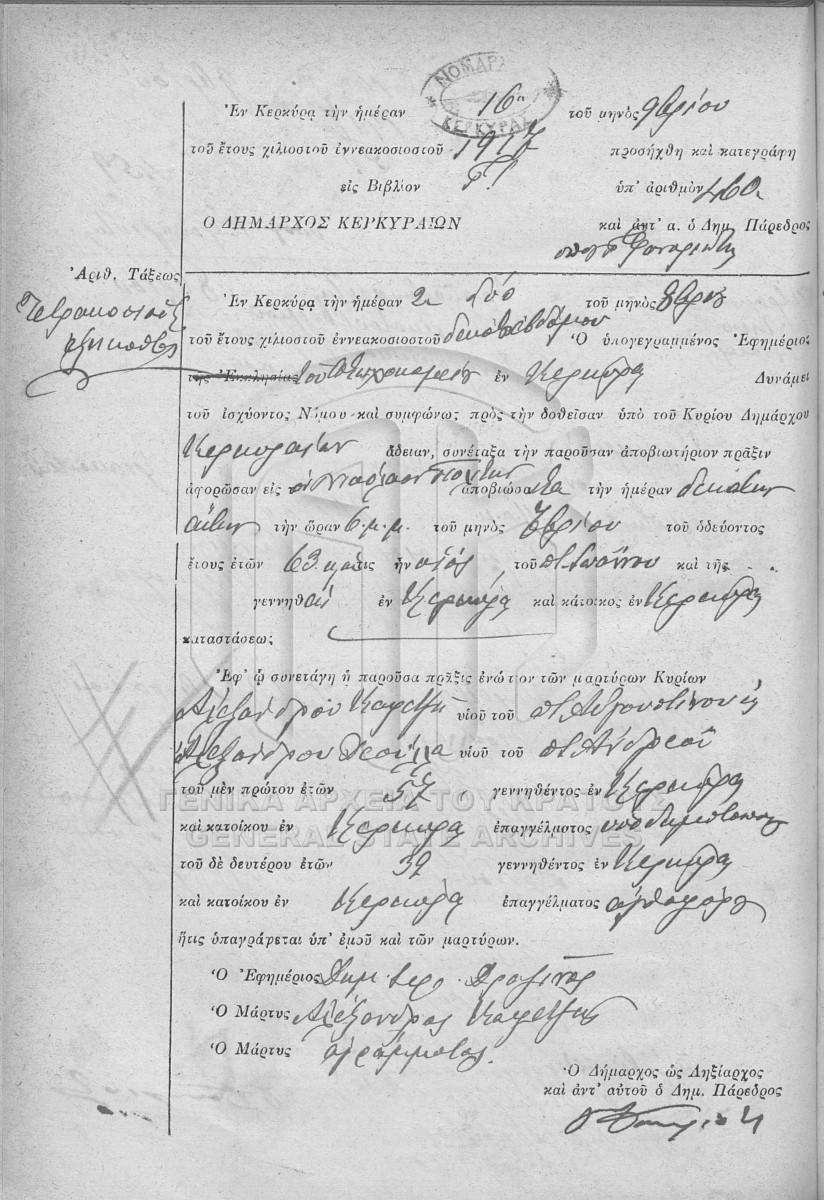 ΝΟΜΑΡΧ
ΚΕΡΚΥΡΑΣ
Ἐν Κερκύρᾳ τὴν ἡμέραν 16η τοῦ μηνὸς 9βρίου
τοῦ ἔτους χιλιοστοῦ ἐννεακοσιοστοῦ 1917 προσήχθη καὶ κατεγράφη
εἰς Βιβλίον ὑπ' ἀριθμὸν 460
Ο ΔΗΜΑΡΧΟΣ ΚΕΡΚΥΡΑΙΩΝ καὶ ἀντ' α. ὁ Δημ. Πάρεδρος
Ἀριθ. Τάξεως
Τετρακόσια
ἑξήκοντα
Ἐν Κερκύρᾳ τὴν ἡμέραν 2α δύο τοῦ μηνὸς
τοῦ ἔτους χιλιοστοῦ ἐννεακοσιοστοῦ δεκάτου ἑβδόμου Ὁ ὑπογεγραμμένος Ἐφημέριος
τῆς Ἐκκλησίας τοῦ Πτωχοκομείου ἐν Κερκύρᾳ Δυνάμει
τοῦ ἰσχύοντος Νόμου καὶ συμφώνως πρὸς τὴν δοθεῖσαν ὑπὸ τοῦ Κυρίου Δημάρχου
Κερκυραίων ἄδειαν, συνέταξα τὴν παροῦσαν ἀποβιωτήριον πρᾶξιν
ἀφορῶσαν εἰς ἀποβιώσαντα τὴν ἡμέραν δεκάτην
τὴν ὥραν 6 μ.μ. τοῦ μηνὸς τοῦ ὁδεύοντος
ἔτους ἐτῶν 63 ὅστις ἦν υἱὸς τοῦ ποτ. Ἰωάννου καὶ τῆς
γεννηθεὶς ἐν Κερκύρᾳ καὶ κάτοικος ἐν Κερκύρᾳ
καταστάσεως
Ἐφ' ᾧ συνετάγη ἡ παροῦσα πρᾶξις ἐνώπιον τῶν μαρτύρων Κυρίων
Ἀλεξάνδρου Καφετζῆ υἱοῦ τοῦ ποτ. Αὐγουστίνου
Ἀλεξάνδρου υἱοῦ τοῦ ποτ. Ἀνδρέου
τοῦ μὲν πρώτου ἐτῶν 57 γεννηθέντος ἐν Κερκύρᾳ
καὶ κατοίκου ἐν Κερκύρᾳ ἐπαγγέλματος ὑποδηματοποιοῦ
τοῦ δὲ δευτέρου ἐτῶν 39 γεννηθέντος ἐν Κερκύρᾳ
καὶ κατοίκου ἐν Κερκύρᾳ ἐπαγγέλματος ἀχθοφόρου
ἥτις ὑπαγράφεται ὑπ' ἐμοῦ καὶ τῶν μαρτύρων.
Ὁ Ἐφημέριος Δημ. ιερ.
Ὁ Μάρτυς Ἀλέξανδρος Καφετζῆς
Ὁ Μάρτυς ἀγράμματος.
Ὁ Δήμαρχος ὡς Ληξίαρχος
καὶ ἀντ' αὐτοῦ ὁ Δημ. Πάρεδρος
ΓΕΝΙΚΑ ΑΡΧΕΙΑ ΤΟΥ ΚΡΑΤΟΥΣ
GENERAL STATE ARCHIVES